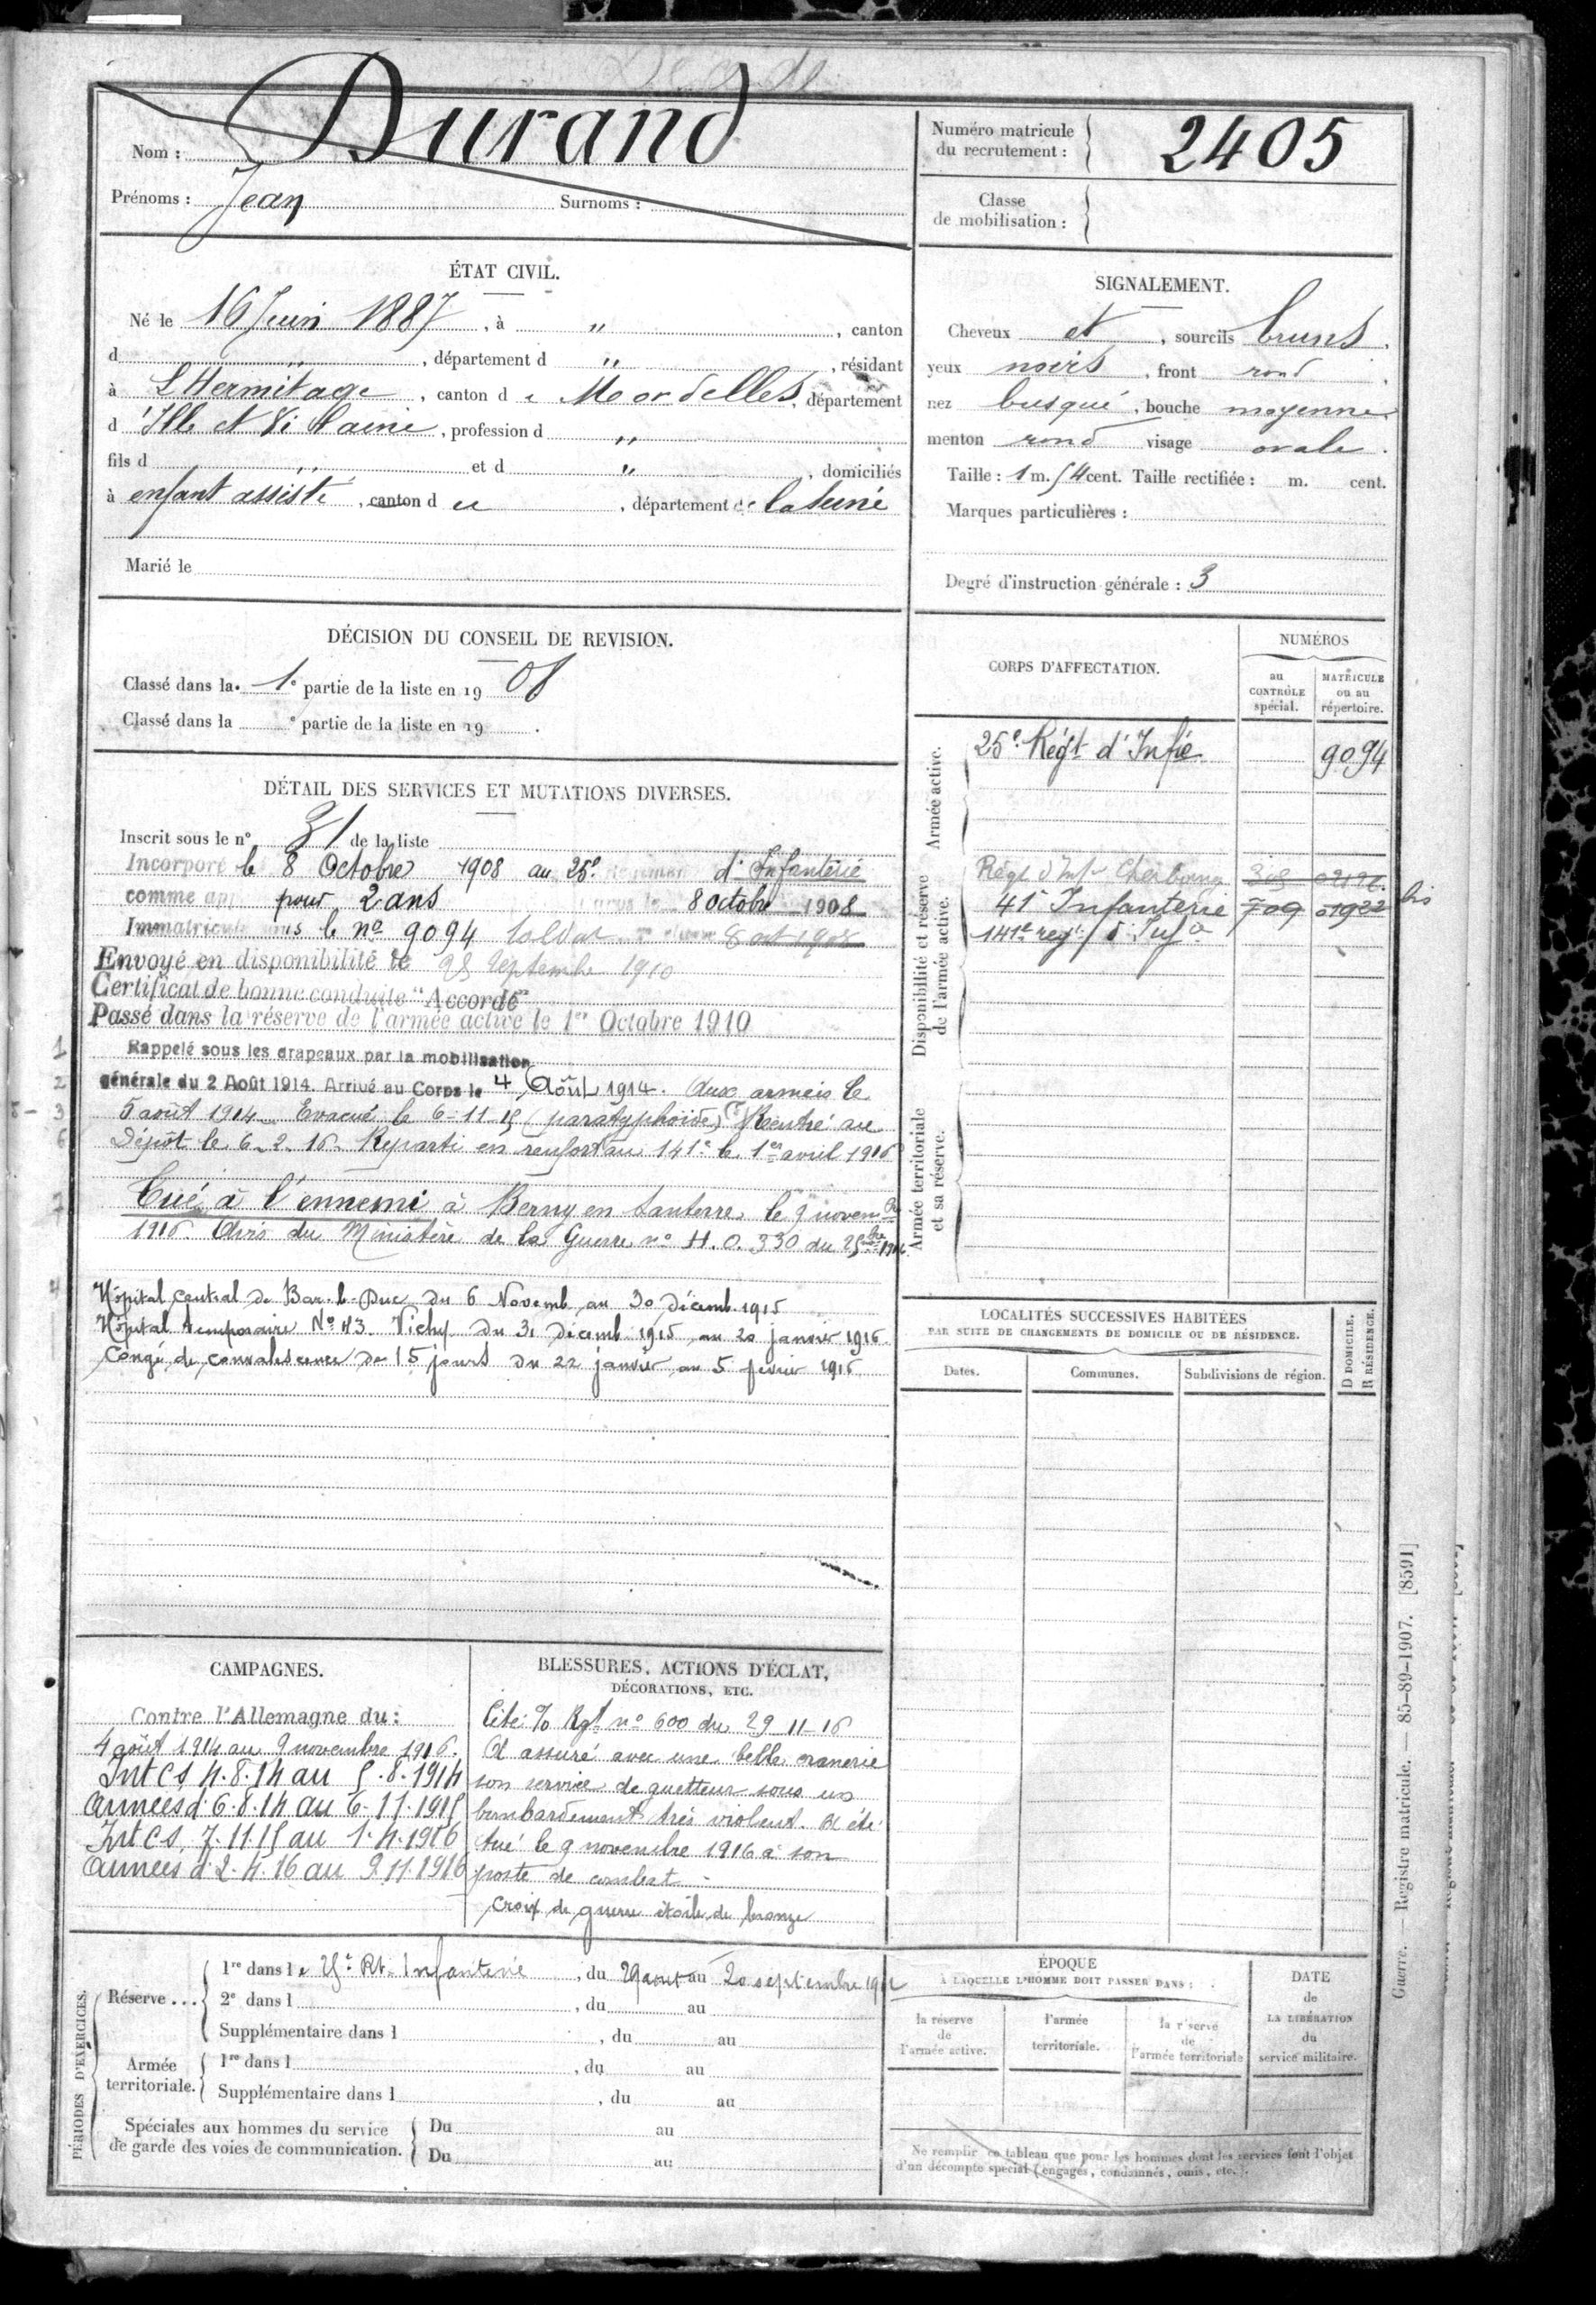 Décédé
Nom : Durand
Prénoms : Jean Surnoms :
Numéro matricule
du recrutement : 2405
Classe
de mobilisation :
ÉTAT CIVIL.
Né le 16 Juin 1887, à " , canton
d " , département d " , résidant
à L'Hermitage, canton de Mordelles, département
d'Ille et Vilaine, profession d "
fils d " et d " , domiciliés
à enfant assisté, canton d , département de la Seine
Marié le
SIGNALEMENT.
Cheveux et , sourcils bruns,
yeux noirs, front rond,
nez busqué, bouche moyenne
menton rond visage ovale.
Taille : 1 m. 54 cent. Taille rectifiée : m. cent.
Marques particulières :
Degré d'instruction générale : 3
DÉCISION DU CONSEIL DE REVISION.
Classé dans la 1e partie de la liste en 1908
Classé dans la e partie de la liste en 19 .
DÉTAIL DES SERVICES ET MUTATIONS DIVERSES.
Inscrit sous le n° 31 de la liste
Incorporé le 8 Octobre 1908 au 25e régiment d'Infanterie
comme app pour 2 ans 8 octobre 1908
Immatriculé sous le no 9094 Soldat 8 oct 1908
Envoyé en disponibilité le 25 septembre 1910
Certificat de bonne conduite "Accordé"
Passé dans la réserve de l'armée active le 1er Octobre 1910
1 Rappelé sous les drapeaux par la mobilisation
2 générale du 2 Août 1914. Arrivé au Corps le 4 Août 1914. Aux armées le
5 - 3 5 août 1914 Evacué le 6-11-15 (paratyphoïde) Rentré au
6 Dépôt le 6-2-16. Réparti en renfort au 141e le 1er avril 1916
7 Tué à l'ennemi à Berny en Santerre le 9 novembre
1916. Avis du Ministère de la Guerre no H.O. 330 du 25
4 Hôpital central de Bar-le-Duc du 6 Novemb. au 30 décemb. 1915
Hôpital temporaire No 43 Vichy du 31 décemb 1915 au 20 janvier 1916.
Congé de convalescence de 15 jours du 22 janvier au 5 février 1916
CORPS D'AFFECTATION.
NUMÉROS
au
CONTRÔLE
spécial.
MATRICULE
ou au
répertoire.
Armée active.
25e Régt d'Infie 9094
Disponibilité et réserve
de l'armée active.
Régt d'Infie Cherbourg
41e Infanterie 709 01922 bis
141e regt d'Infie
Armée territoriale
et sa réserve.
LOCALITÉS SUCCESSIVES HABITÉES
PAR SUITE DE CHANGEMENTS DE DOMICILE OU DE RÉSIDENCE.
Dates. Communes. Subdivisions de région.
D DOMICILE.
R RÉSIDENCE.
CAMPAGNES.
Contre l'Allemagne du :
4 août 1914 au 9 novembre 1916.
Int CS 4.8.14 au 5.8.1914
Armées d: 6.8.14 au 6.11.1915
Int CS. 7.11.15 au 1.4.1916
Armées d: 2.4.16 au 9.11.1916
BLESSURES, ACTIONS D'ÉCLAT,
DÉCORATIONS, ETC.
Cité % Rgt no 600 du 29-11-16
A assuré avec une belle cranerie
son service de guetteur sous un
bombardement très violent. A été
tué le 9 novembre 1916 à son
poste de combat -
Croix de guerre étoile de bronze
PÉRIODES D'EXERCICES.
Réserve ...
1re dans le 25e Rt. Infanterie, du 29 août au 20 septembre
2e dans l , du au
Supplémentaire dans l , du au
Armée
territoriale.
1re dans l , du au
Supplémentaire dans l , du au
Spéciales aux hommes du service
de garde des voies de communication.
Du au
Du au
ÉPOQUE
À LAQUELLE L'HOMME DOIT PASSER DANS :
la réserve
de
l'armée active.
l'armée
territoriale.
la réserve
de
l'armée territoriale
DATE
de
LA LIBÉRATION
du
service militaire.
Ne remplir ce tableau que pour les hommes dont les services font l'objet
d'un décompte spécial (engagés, condamnés, omis, etc.).
Guerre. — Registre matricule. — 85-89-1907. [8591]